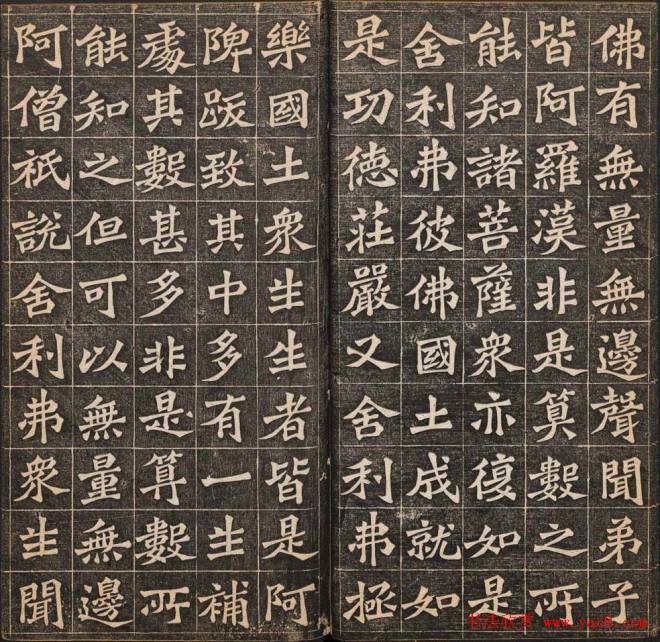 佛有無量無邊聲聞弟子
皆阿羅漢非是筭數之所
能知諸菩薩衆亦復如是
舍利弗彼佛國土成就如
是功德莊嚴又舍利弗極
樂國土衆生生者皆是阿
陴跋致其中多有一生補
處其數甚多非是算數所
能知之但可以無量無邊
阿僧祇說舍利弗衆生聞
书法欣赏 www.yac8.com